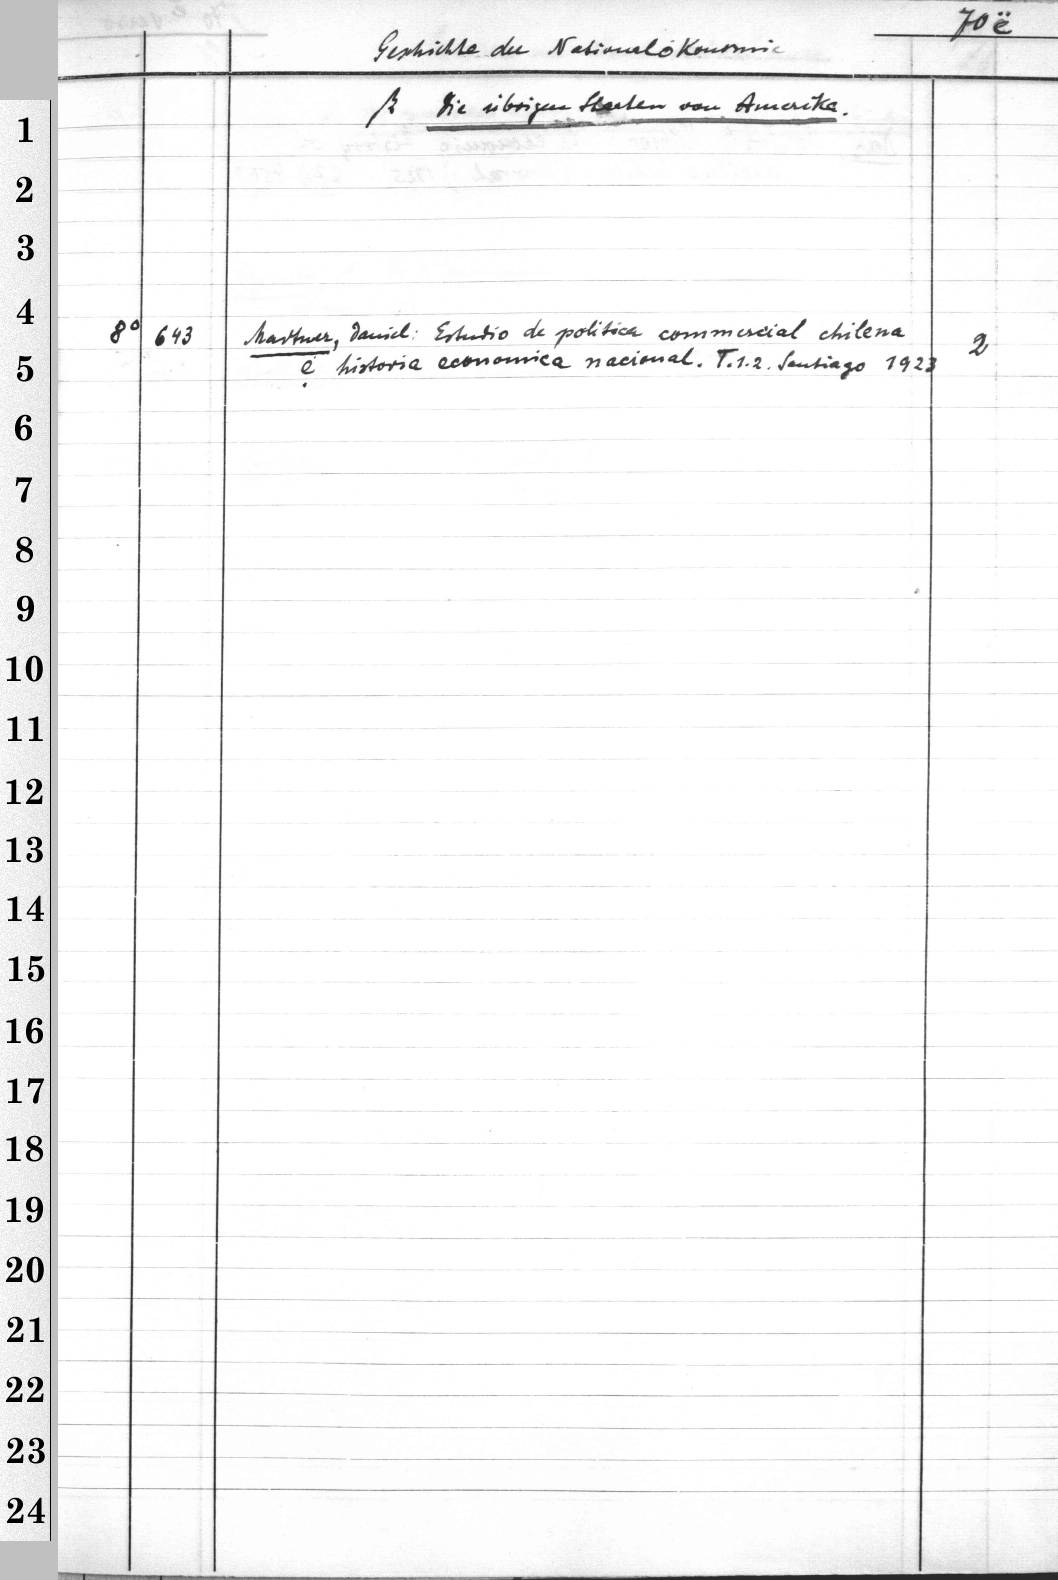 70ë
Geschichte der Nationalökonomie
β Die übrigen Staaten von Amerika.
8° 643 Martner, Daniel: Estudio de politica commercial chilena 2
é historia economica nacional. T.1.2. Santiago 1923
1
2
3
4
5
6
7
8
9
10
11
12
13
14
15
16
17
18
19
20
21
22
23
24